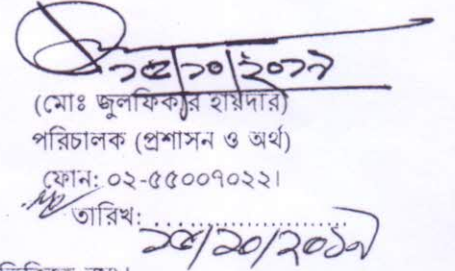 ১৫/১০/২০১৭
(মোঃ জুলফিকার হায়দার)
পরিচালক (প্রশাসন ও অর্থ)
ফোন: ০২-৫৫০০৭০২২।
তারিখ: ....................
১৫/১০/২০১৭